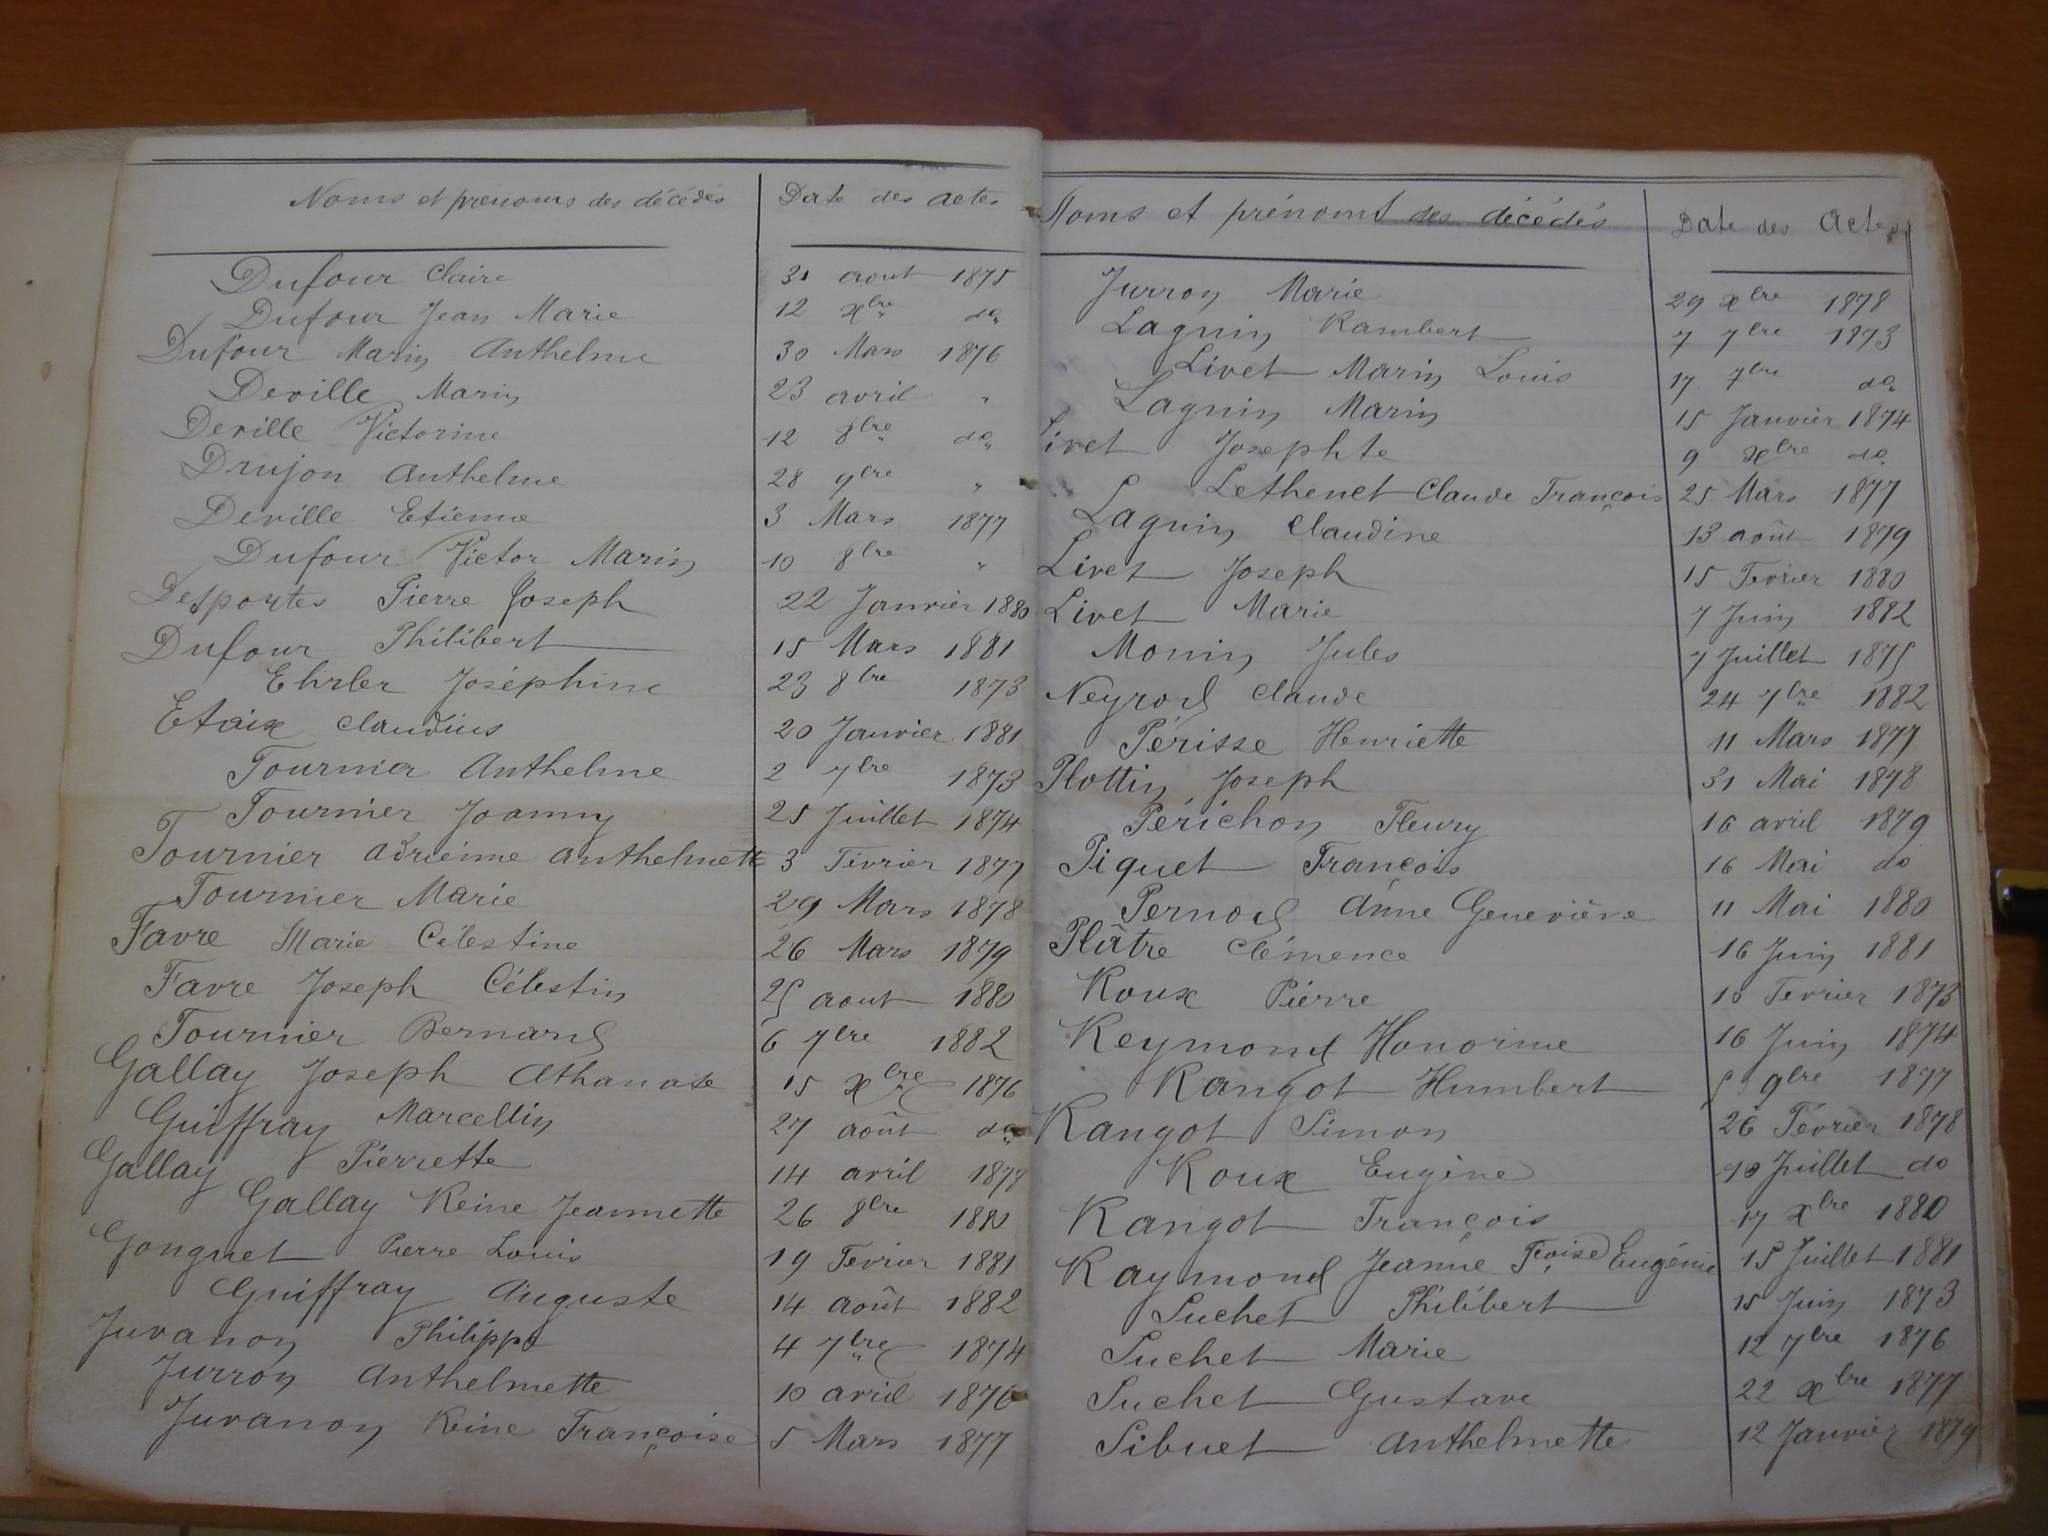 Noms et prénoms des décédés Date des actes
Dufour Claire 31 aout 1875
Dufour Jean Marie 12 xbre do
Dufour Marin Anthelme 30 Mars 1876
Deville Marin 23 avril "
Deville Victorine 12 8bre do
Drujon Anthelme 28 9bre "
Deville Etienne 3 Mars 1877
Dufour Victor Marin 10 8bre "
Desportes Pierre Joseph 22 Janvier 1880
Dufour Philibert 15 Mars 1881
Ehrler Joséphine 23 8bre 1873
Etaix Claudius 20 Janvier 1881
Fournier Anthelme 2 7bre 1873
Fournier Joanny 25 Juillet 1874
Fournier Adrienne Anthelmette 3 Février 1877
Fournier Marie 29 Mars 1878
Favre Marie Célestine 26 Mars 1879
Favre Joseph Célestin 25 aout 1880
Fournier Bernard 6 7bre 1882
Gallay Joseph Athanase 15 xbre 1876
Guiffray Marcellin 27 août do
Gallay Pierrette 14 avril 1878
Gallay Reine Jeannette 26 8bre 1880
Gonguet Pierre Louis 19 Fevrier 1881
Guiffray Auguste 14 août 1882
Juvanon Philippe 4 7bre 1874
Jurron Anthelmette 10 avril 1876
Juvanon Reine Françoise 5 Mars 1877
Noms et prénoms des décédés Date des Actes
Jurron Marie 29 xbre 1878
Lagnin Rambert 7 7bre 1873
Livet Marin Louis 17 7bre do
Lagnin Marin 15 Janvier 1874
Livet Josephte 9 xbre do
Lethenet Claude François 25 Mars 1877
Lagnin Claudine 13 août 1879
Livet Joseph 15 Fevrier 1880
Livet Marie 7 Juin 1882
Monin Jules 7 Juillet 1875
Neyrod Claude 24 7bre 1882
Périsse Henriette 11 Mars 1877
Plottin Joseph 31 Mai 1878
Périchon Fleury 16 avril 1879
Piquet François 16 Mai do
Pernod Anne Geneviève 11 Mai 1880
Plâtre Clémence 16 Juin 1881
Roux Pierre 10 Fevrier 1873
Reymond Honorine 16 Juin 1874
Rangot Humbert 5 9bre 1877
Rangot Simon 26 Février 1878
Roux Eugène 10 Juillet do
Rangot François 17 xbre 1880
Raymond Jeanne Fçoise Eugénie 15 Juillet 1881
Suchet Philibert 15 Juin 1873
Suchet Marie 12 7bre 1876
Suchet Gustave 22 xbre 1877
Sibuet Anthelmette 12 Janvier 1879